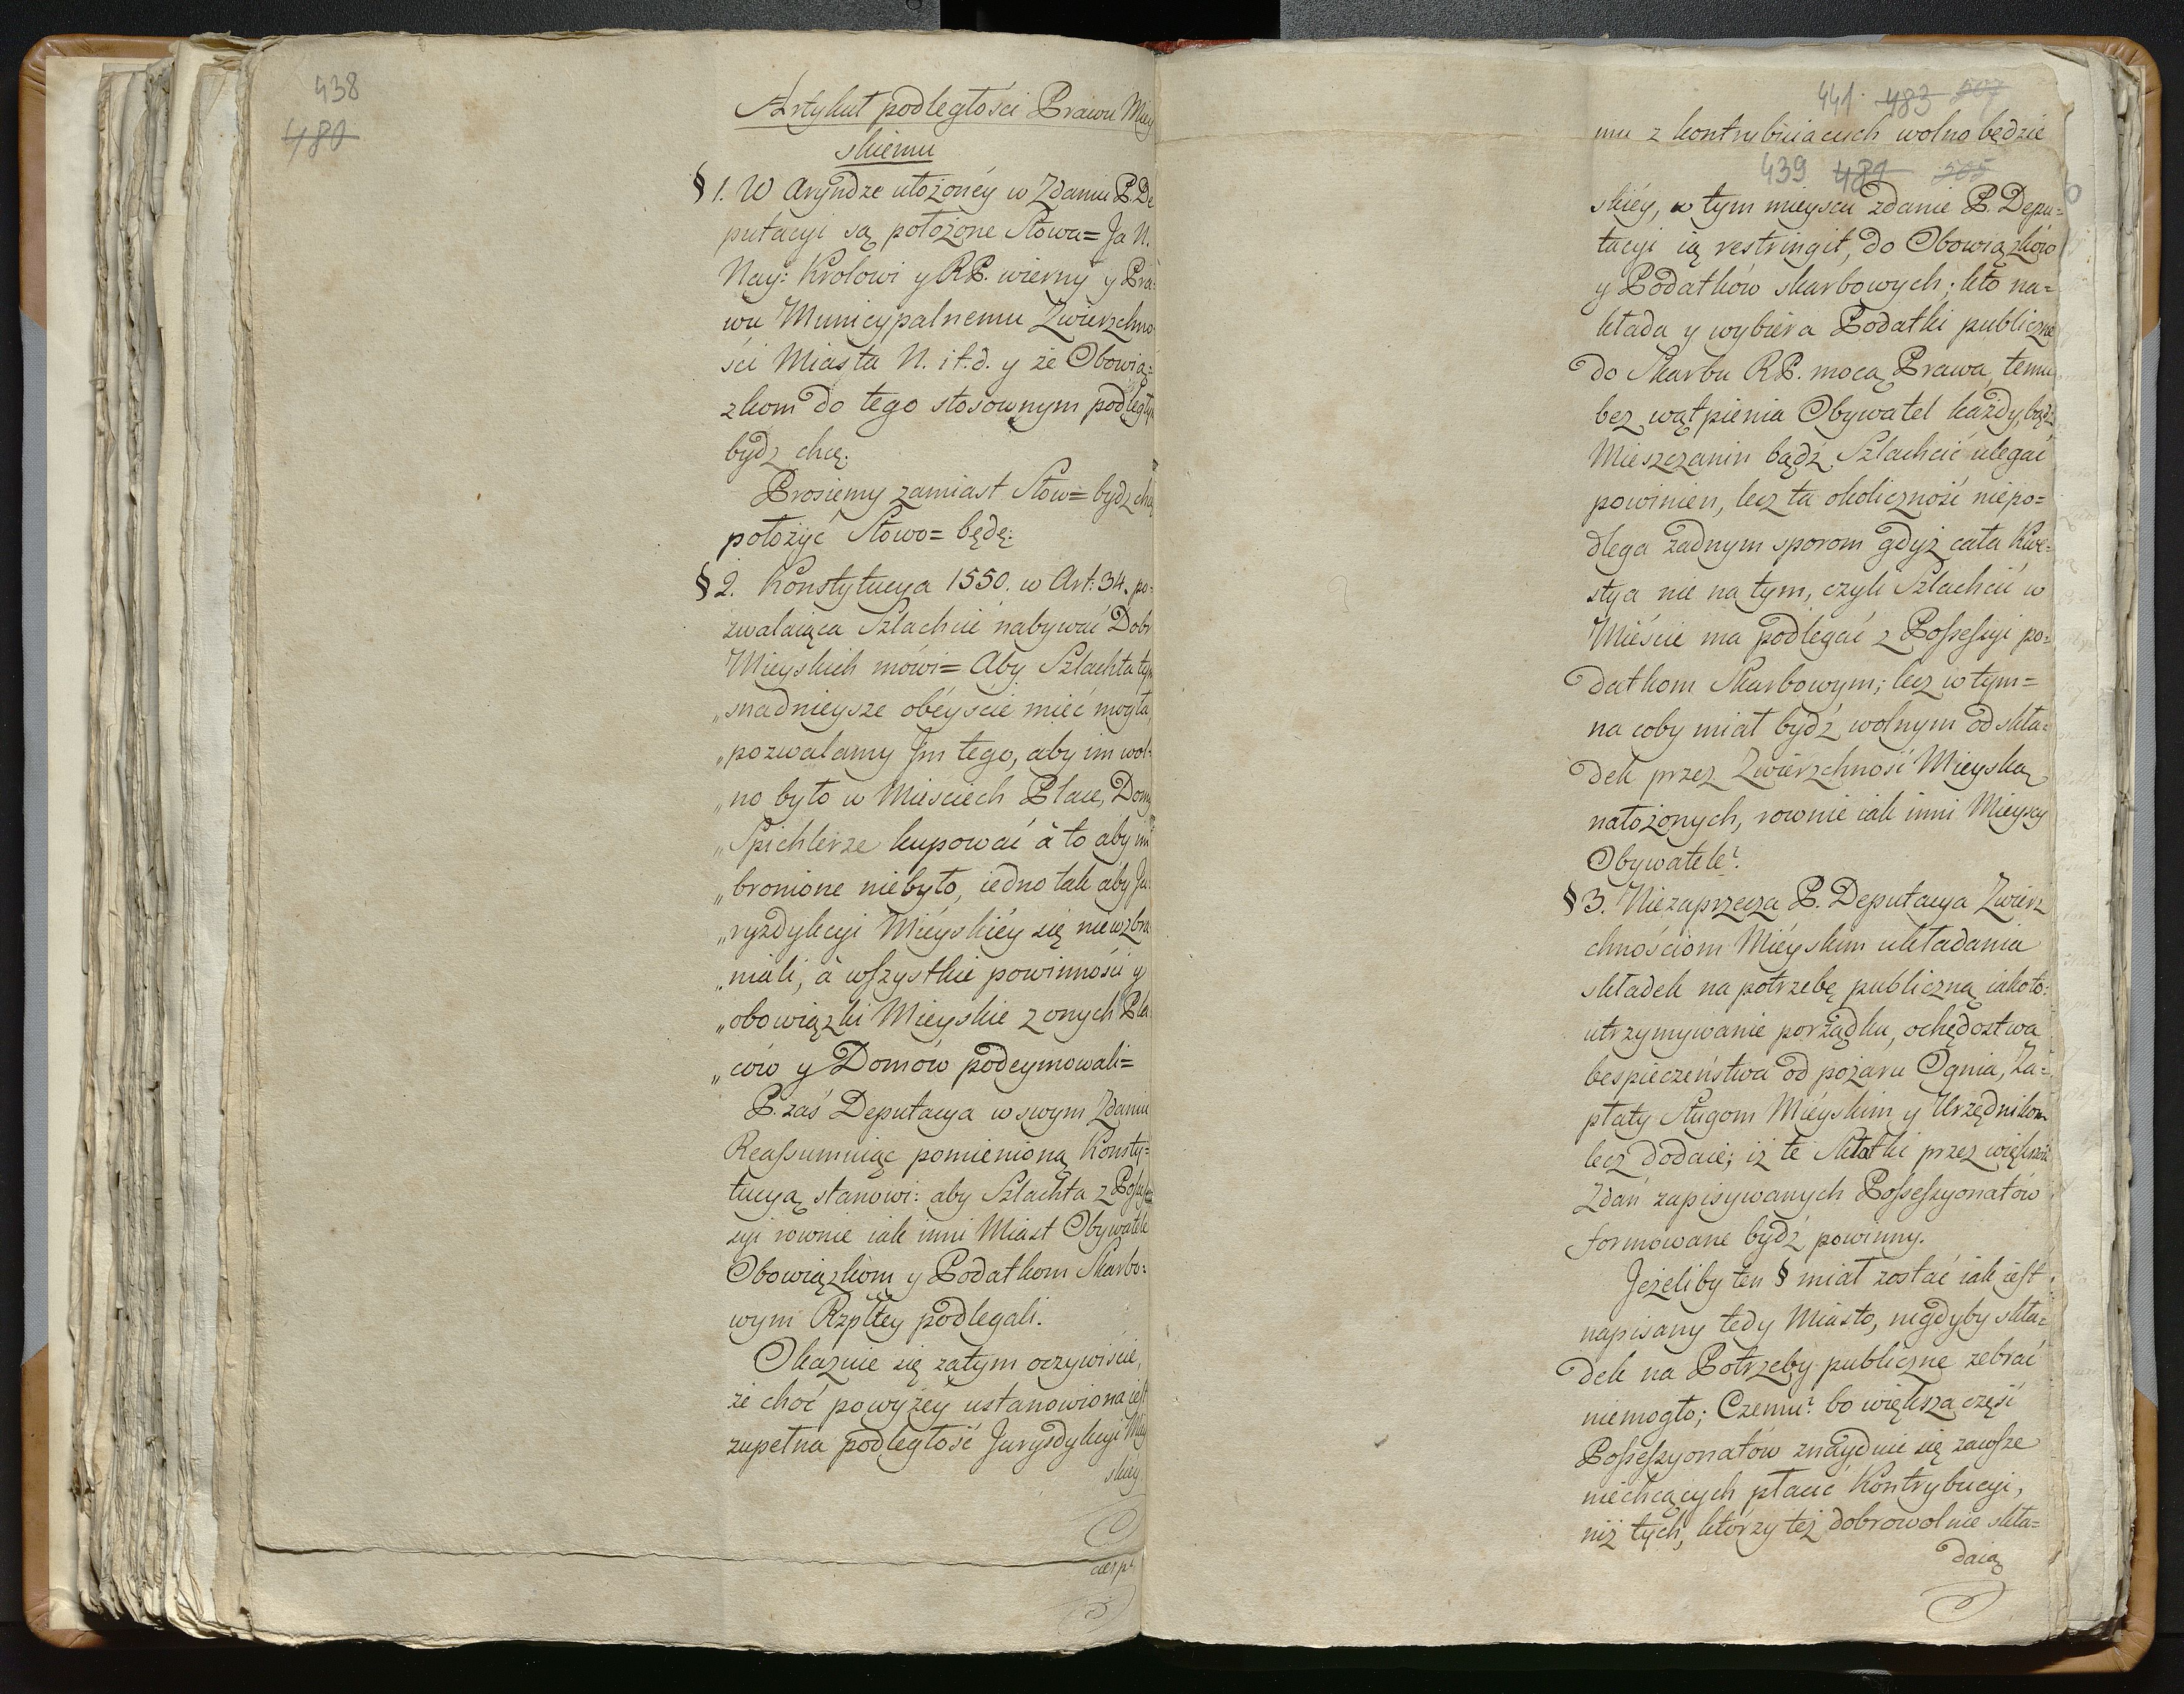 438
480
Artykuł podległości Prawu Miey
skiemu
§ 1. W Aryndze ułożonéy w Zdaniu P. De
putacyi są położone Słowa= Ja N.
Nay: Krolowi y RP. wierny y Pra=
wu Municypalnemu Zwierzchno
ści Miasta N. i t. d. y że Obowią=
zkom do tego stosownym podległy
bydz chcę.
Prosiemy zamiast Słow= bydz chcę
położyć Słowo= będę.
§ 2. Konstytucya 1550. w Art: 34. po=
zwalaiąca Szlachcie nabywać Dobr
Mieyskich mówi= Aby Szlachta tym
„snadnieysze obéyście mieć mogła,
„pozwalamy Jm tego, aby im wol=
„no było w Mieściech Place, Domy
„Spichlerze kupować à to aby im
„bronione niebyło, iedno tak aby Ju
„ryzdykcyi Miéyskiéy się niewzbra
„niali, à wszystkie powinności y
„obowiązki Mieyskie z onych Pla
„ców y Domów podeymowali=
P. zaś Deputacya w swym Zdaniu
Reassumuiąc pomienioną Konsty=
tucyą stanowi: aby Szlachta z Posses
syi rownie iak inni Miast Obywatele
Obowiązkom y Podatkom Skarbo=
wym Rzpltey podlegali.
Okazuie się zatym oczywiście,
że choć powyżéy ustanowiona iest
zupełna podległość Jurysdykcyi Miey
skiéy
cierp
441. 483 507
mu z kontrybuiacych wolno będzie
439 481 505
skiéy, w tym mieyscu zdanie P. Depu=
tacyi ią restringit, do Obowiązków
y Podatków skarbowych; kto na=
kłada y wybiera Podatki publiczne
do Skarbu RP. mocą Prawa, temu
bez wątpienia Obywatel każdy, bądz
Mieszczanin bądź Szlachcić ulegać
powinien, lecz ta okoliczność niepo=
dlega żadnym sporom gdyż cała Kwe=
stya nie na tym, czyli Szlachcić w
Mieście ma podlegać z Possessyi po=
datkom Skarbowym; lecz w tym=
na coby miał bydź wolnym od skła=
dek przez Zwierzchność Mieyską
nałożonych, rownie iak inni Mieyscy
Obywatele?
§ 3. Niezaprzecza P. Deputacya Zwierz
chnościom Miéyskim układania
składek na potrzebę publiczną iakoto:
utrzymywanie porządku, ochędostwa
bespieczeństwa od pożaru Ognia, Za=
płaty Sługom Miéyskim y Urzędnikom
lecz dodaie; iż te Składki przez większość
Zdań zapisywanych Possessyonatów
formowane bydź powinny.
Jeżeliby ten § miał zostać iak iest
napisany tedy Miasto, nigdyby skła=
dek na Potrzeby publiczne zebrać
niemogło; Czemu? bo większa część
Possessyonatów znayduie się zawsze
niechcących płacić Kontrybucyi,
niż tych, którzy też dobrowolnie skła=
daią